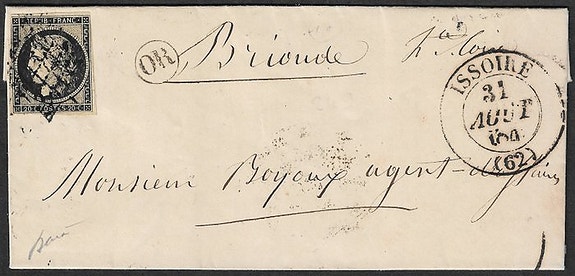 REPUB. FRANC.
20 C POSTES 20 C
OR
Brioude hte Loire
ISSOIRE
31
AOUT
(62)
Monsieur Boyoux agent-d'affaires